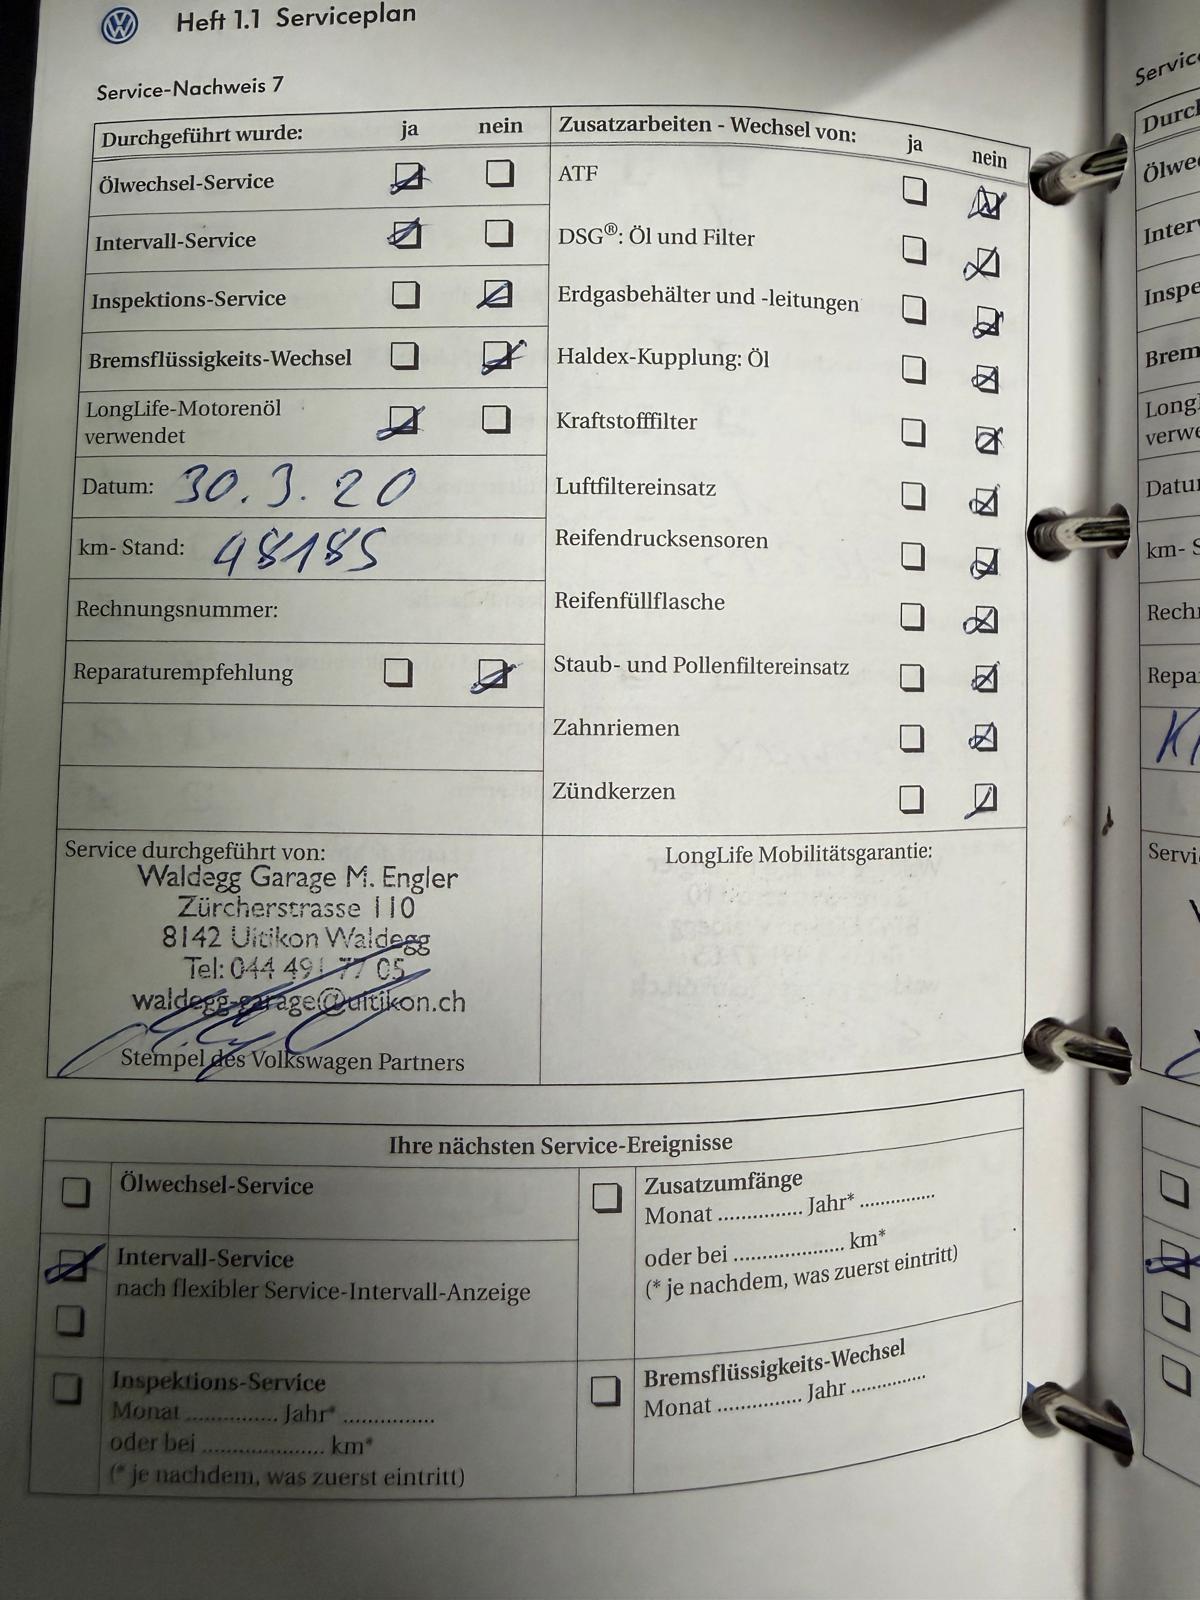 Heft 1.1 Serviceplan
Service-Nachweis 7
Durchgeführt wurde: ja nein
Ölwechsel-Service
Intervall-Service
Inspektions-Service
Bremsflüssigkeits-Wechsel
LongLife-Motorenöl
verwendet
Datum: 30.3.20
km- Stand: 48185
Rechnungsnummer:
Reparaturempfehlung
Zusatzarbeiten - Wechsel von: ja nein
ATF
DSG®: Öl und Filter
Erdgasbehälter und -leitungen
Haldex-Kupplung: Öl
Kraftstofffilter
Luftfiltereinsatz
Reifendrucksensoren
Reifenfüllflasche
Staub- und Pollenfiltereinsatz
Zahnriemen
Zündkerzen
Service durchgeführt von:
Waldegg Garage M. Engler
Zürcherstrasse 110
8142 Uitikon Waldegg
Tel: 044 491 77 05
waldegg-garage@uitikon.ch
Stempel des Volkswagen Partners
LongLife Mobilitätsgarantie:
Ihre nächsten Service-Ereignisse
Ölwechsel-Service
Intervall-Service
nach flexibler Service-Intervall-Anzeige
Inspektions-Service
Monat ............... Jahr* ...............
oder bei .................... km*
(* je nachdem, was zuerst eintritt)
Zusatzumfänge
Monat .............. Jahr* ..............
oder bei .................... km*
(* je nachdem, was zuerst eintritt)
Bremsflüssigkeits-Wechsel
Monat .............. Jahr ..............
Datu
km- S
Servi